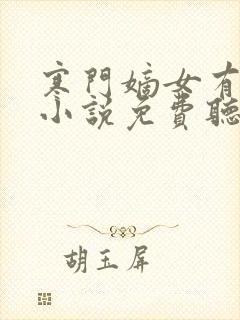 寒門嫡女有
小說免費聽
胡玉屏